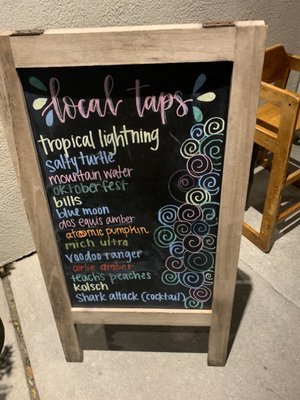 local taps
tropical lightning
salty turtle
mountain water
oktoberfest
bills
blue moon
dos equis amber
atomic pumpkin
mich ultra
voodoo ranger
airlie amber
teachs peaches
kolsch
Shark attack (cocktail)